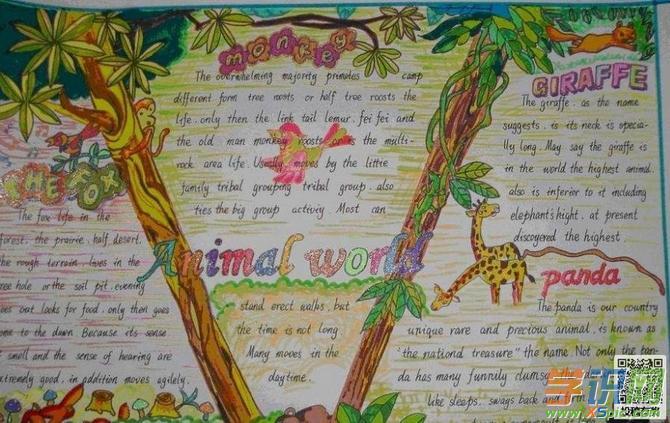 monkey
The overwhelming majority primates camp
different form tree roosts or half tree roosts the
life. only then the link tail lemur. fei fei and
the old man monkey roosts or is the multi-
rock area life. Usually moves by the little
family tribal grouping tribal group. also
ties the big group activiy. Most can
stand erect walks, but
the time is not long
Many moves in the
daytime.
Animal world
THE FOX
The fox life in the
forest. the prairie. half desert.
the rough terrain lives in the
tree hole or the soil pit. evening
goes out looks for food. only then goes
home to the dawn. Because its sense
of smell and the sense of hearing are
extremely good. in addition moves agilely.
GIRAFFE
The giraffe. as the name
suggests. is its neck is specia-
lly long. May say the giraffe is
in the world the highest animal.
also is inferior to it including
elephant's hight. at present
discoyed the highest
panda
The panda is our country
unique rare and precious animal. is known as
"the national treasure" the name. Not only the pan-
da has many funnily clumsy
like sleeps. sways back and forth
学识网
www.xspic.com